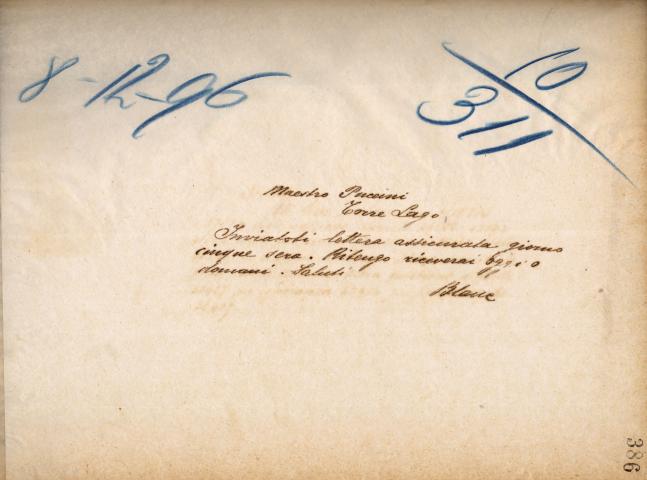 8-12-96
10
311
Maestro Puccini
Torre Lago,
Inviatoti lettera assicurata giorno
cinque sera. Ritengo riceverai oggi o
domani. Saluti
Blanc
386